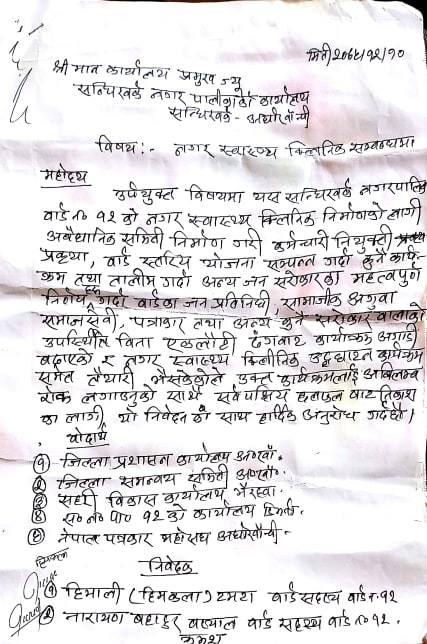 मिती २०७५/१२/१०
श्री मान कार्यालय प्रमुख ज्यू
सन्धिखर्क नगर पालिकाको कार्यालय
सन्धिखर्क - अर्घाखाँची
विषय:- नगर स्वास्थ्य क्लिनिक सम्बन्धमा।
महोदय
उपर्युक्त विषयमा यस सन्धिखर्क नगरपालि
वार्ड नं १२ को नगर स्वास्थ्य क्लिनिक निर्माणको लागी
अबैधानिक समिती निर्माण गरी कर्मचारी नियुक्ती
प्रकृया, वार्ड स्तरिय योजना सम्पन्त गर्दा कुनै कार्य-
क्रम तथा तालीम गर्दा अन्य जन सरोकारका महत्वपुर्ण
निर्णय गर्दा वार्डका जन प्रतिनिधी, सामाजीक अगुवा
समाजसेवी, पत्रकार तथा अन्य कुनै सरोकारवालाको
उपस्थिति विना एकलौटी ढंगबाट कार्यक्रम अगाडी
बढाएको र नगर स्वास्थ्य क्लिनिक उद्घाटन कार्यक्रम
समेत तैयारी भैसकेकोले उक्त कार्यक्रमलाई अबिलम्ब
रोक लगाउनुको साथै सर्वपक्षिय छलफल बाट निकास
का लागी यो निवेदन का साथ हार्दिक अनुरोध गर्दछौ।
बोधार्थ
१- जिल्ला प्रशासन कार्यालय अर्घाखाँ.
२ जिल्ला समन्वय समिती अर्घाखाँ.
विकास कार्यालय भैरहवा.
४ स० न० पा० १२ को कार्यालय
५ नेपाल पत्रकार महासंघ अर्घाखाँची -
निवेदक
हिमकला
१ हिमाली (हिमकला) टमटा वार्ड सदस्य वार्ड नं. १२
२ नारायण बहादुर वार्ड सदस्य वार्ड नं १२.
क्रमश